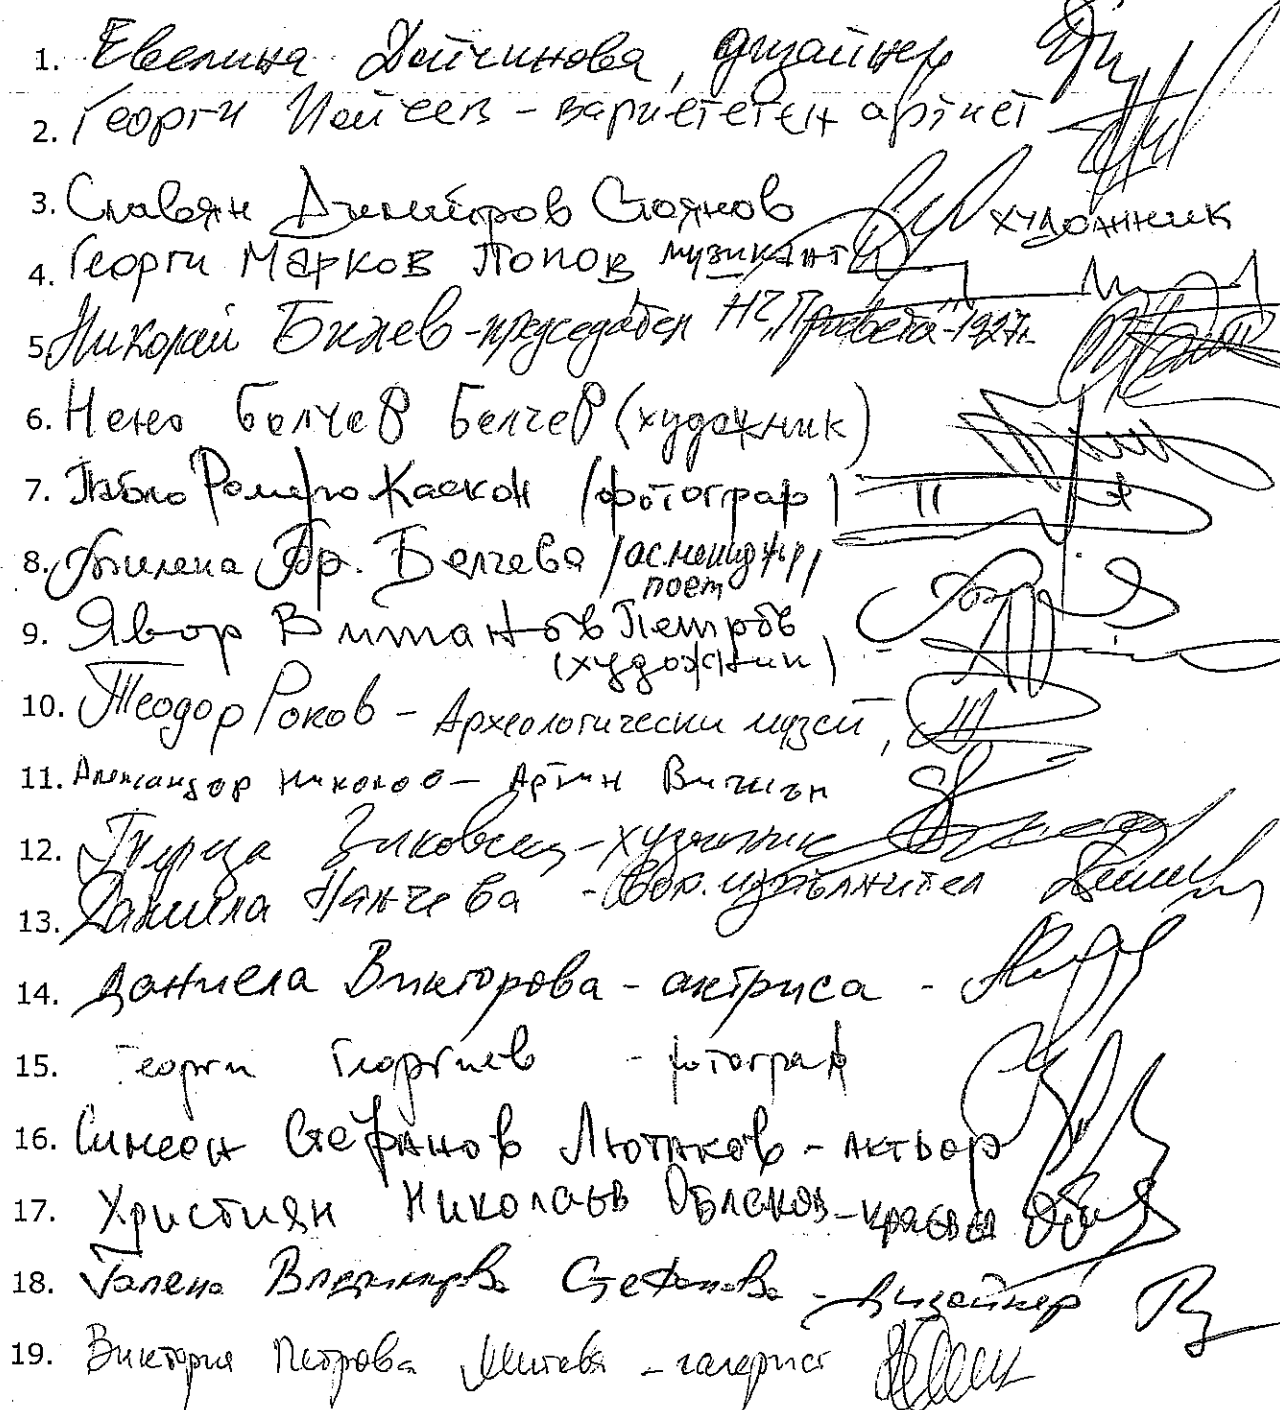 1. Евелина Дойчинова, дизайнер
2. Георги - вариететен артист
3. Славян Димитров Стоянов художник
4. Георги Марков Попов, музикант
5. Николай - председател НЧ "Просвета - 1927г."
6. Нено Белчев Белчев (художник)
7. Пабло Ромеро /фотограф/
8. Милена Др. Белчева /ас. мениджър/
поет
9. Явор Витанов Петров
(художник)
10. Теодор Роков - Археологически музей,
11. Александър Николов - Артин Вижън
12. - художник
13. Данила Нанчева - Вок. изпълнител
14. Даниела Викторова - актриса -
15. Георги Георгиев - фотограф
16. Симеон Стефанов Лютаков - актьор
17. Християн Николаев Облаков -
18. Галена Владимирова Стефанова - дизайнер
19. Виктория Петрова Митева - галерист